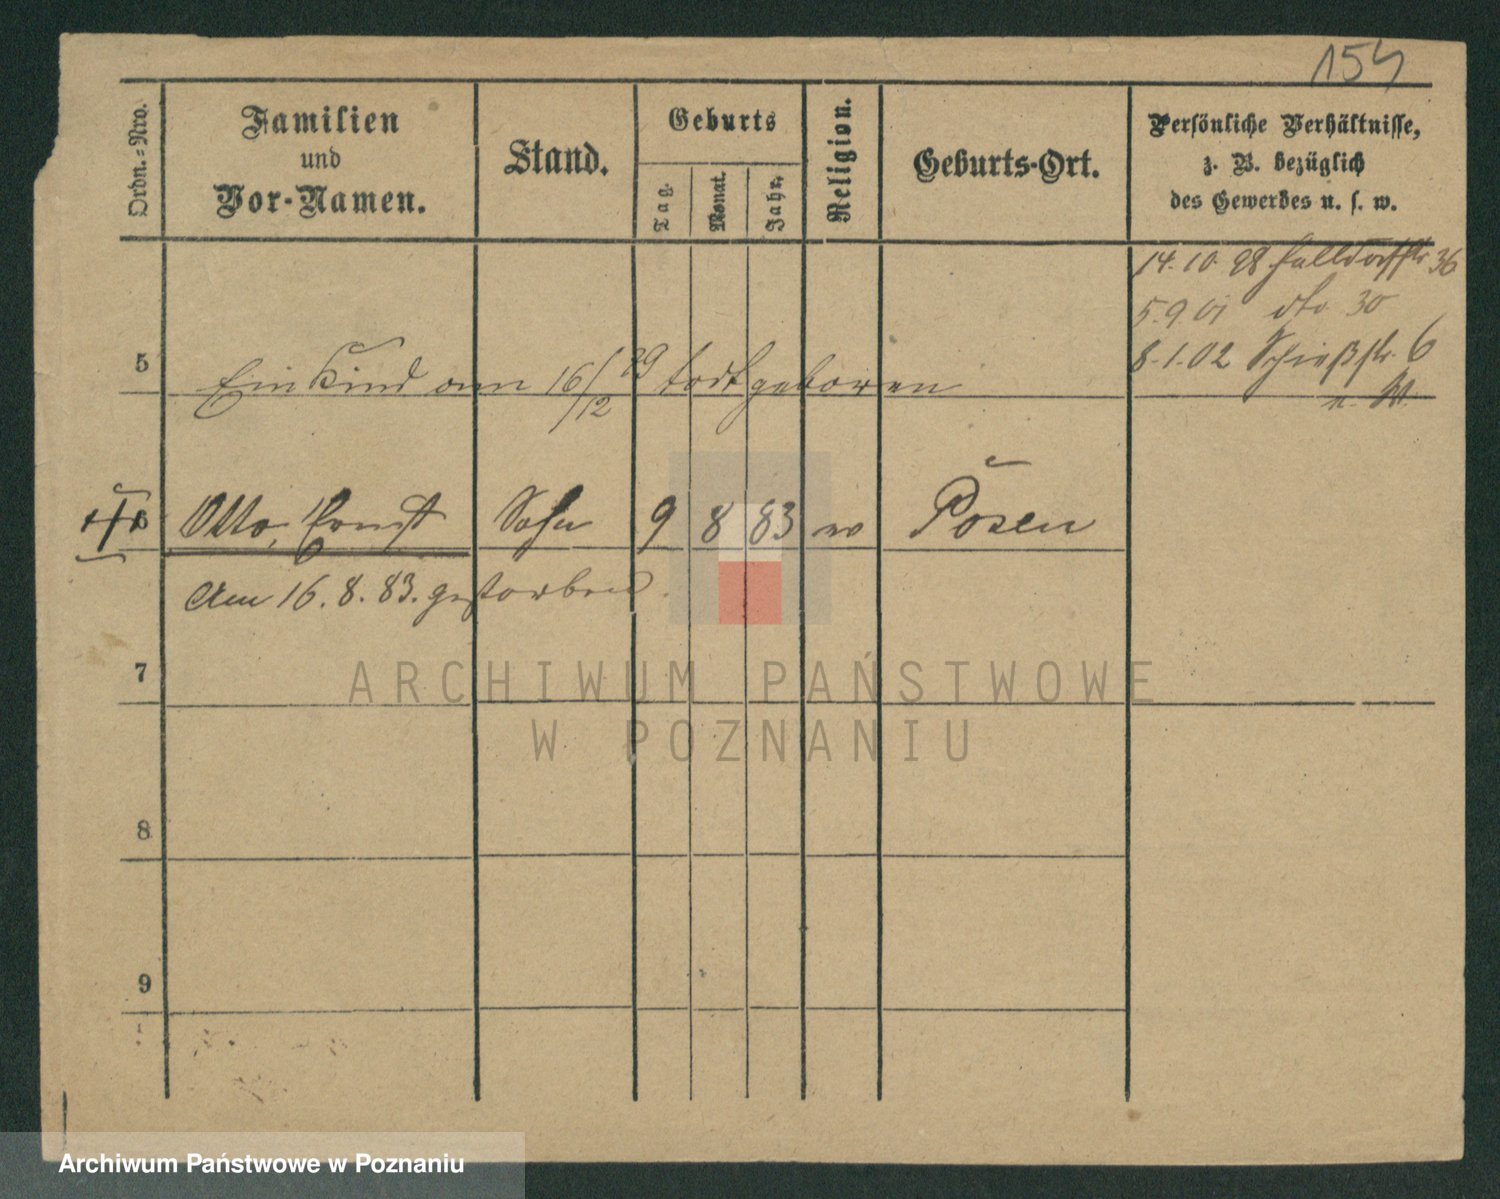 154
Ordn.-Nro.
Familien
und
Vor-Namen.
Stand.
Geburts
Tag.
Monat.
Jahr.
Religion.
Geburts-Ort.
Persönliche Verhältnisse,
z. B. bezüglich
des Gewerbes u. s. w.
14.10.98 36
5.9.01 dto 30
8.1.02 Schießstr. 6
5 Ein Kind am 16/12 todtgeboren
6 Otto, Ernst Sohn 9 8 83 Posen
Am 16.8.83. gestorben.
7
8
9
ARCHIWUM PAŃSTWOWE
W POZNANIU
Archiwum Państwowe w Poznaniu